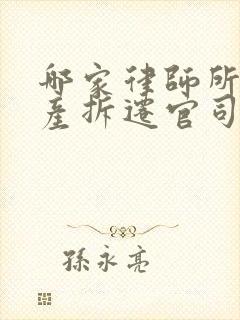 邮家律師所
產拆遷官司
孫永亮